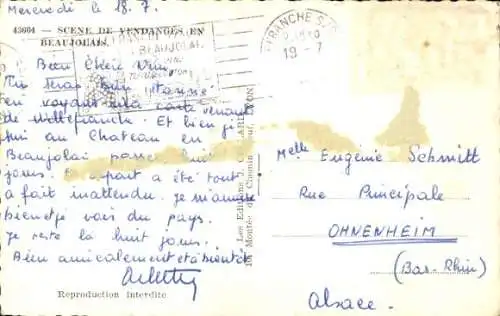 Mercredi le 18.7.
43664 - SCENE DE VENDANGES EN
BEAUJOLAIS.
BEAUJOLAI
FRANCHE S
19 - 7
Bien Chère Amie
Tu seras bien étonné
en voyant la carte venant
de Villefranche. Et bien je
suis au Chateau en
Beaujolais passer huit
jours. départ a été tout
a fait inattendu. Je m'amuse
bien et je vois du pays.
Je reste là huit jours.
Bien amicalement et à bientôt
Arlette
Reproduction interdite
Les Editions J. CELLARD
Montée du Chemin LYON
Melle Eugénie Schmitt
Rue Principale
OHNENHEIM
(Bas-Rhin)
Alsace.